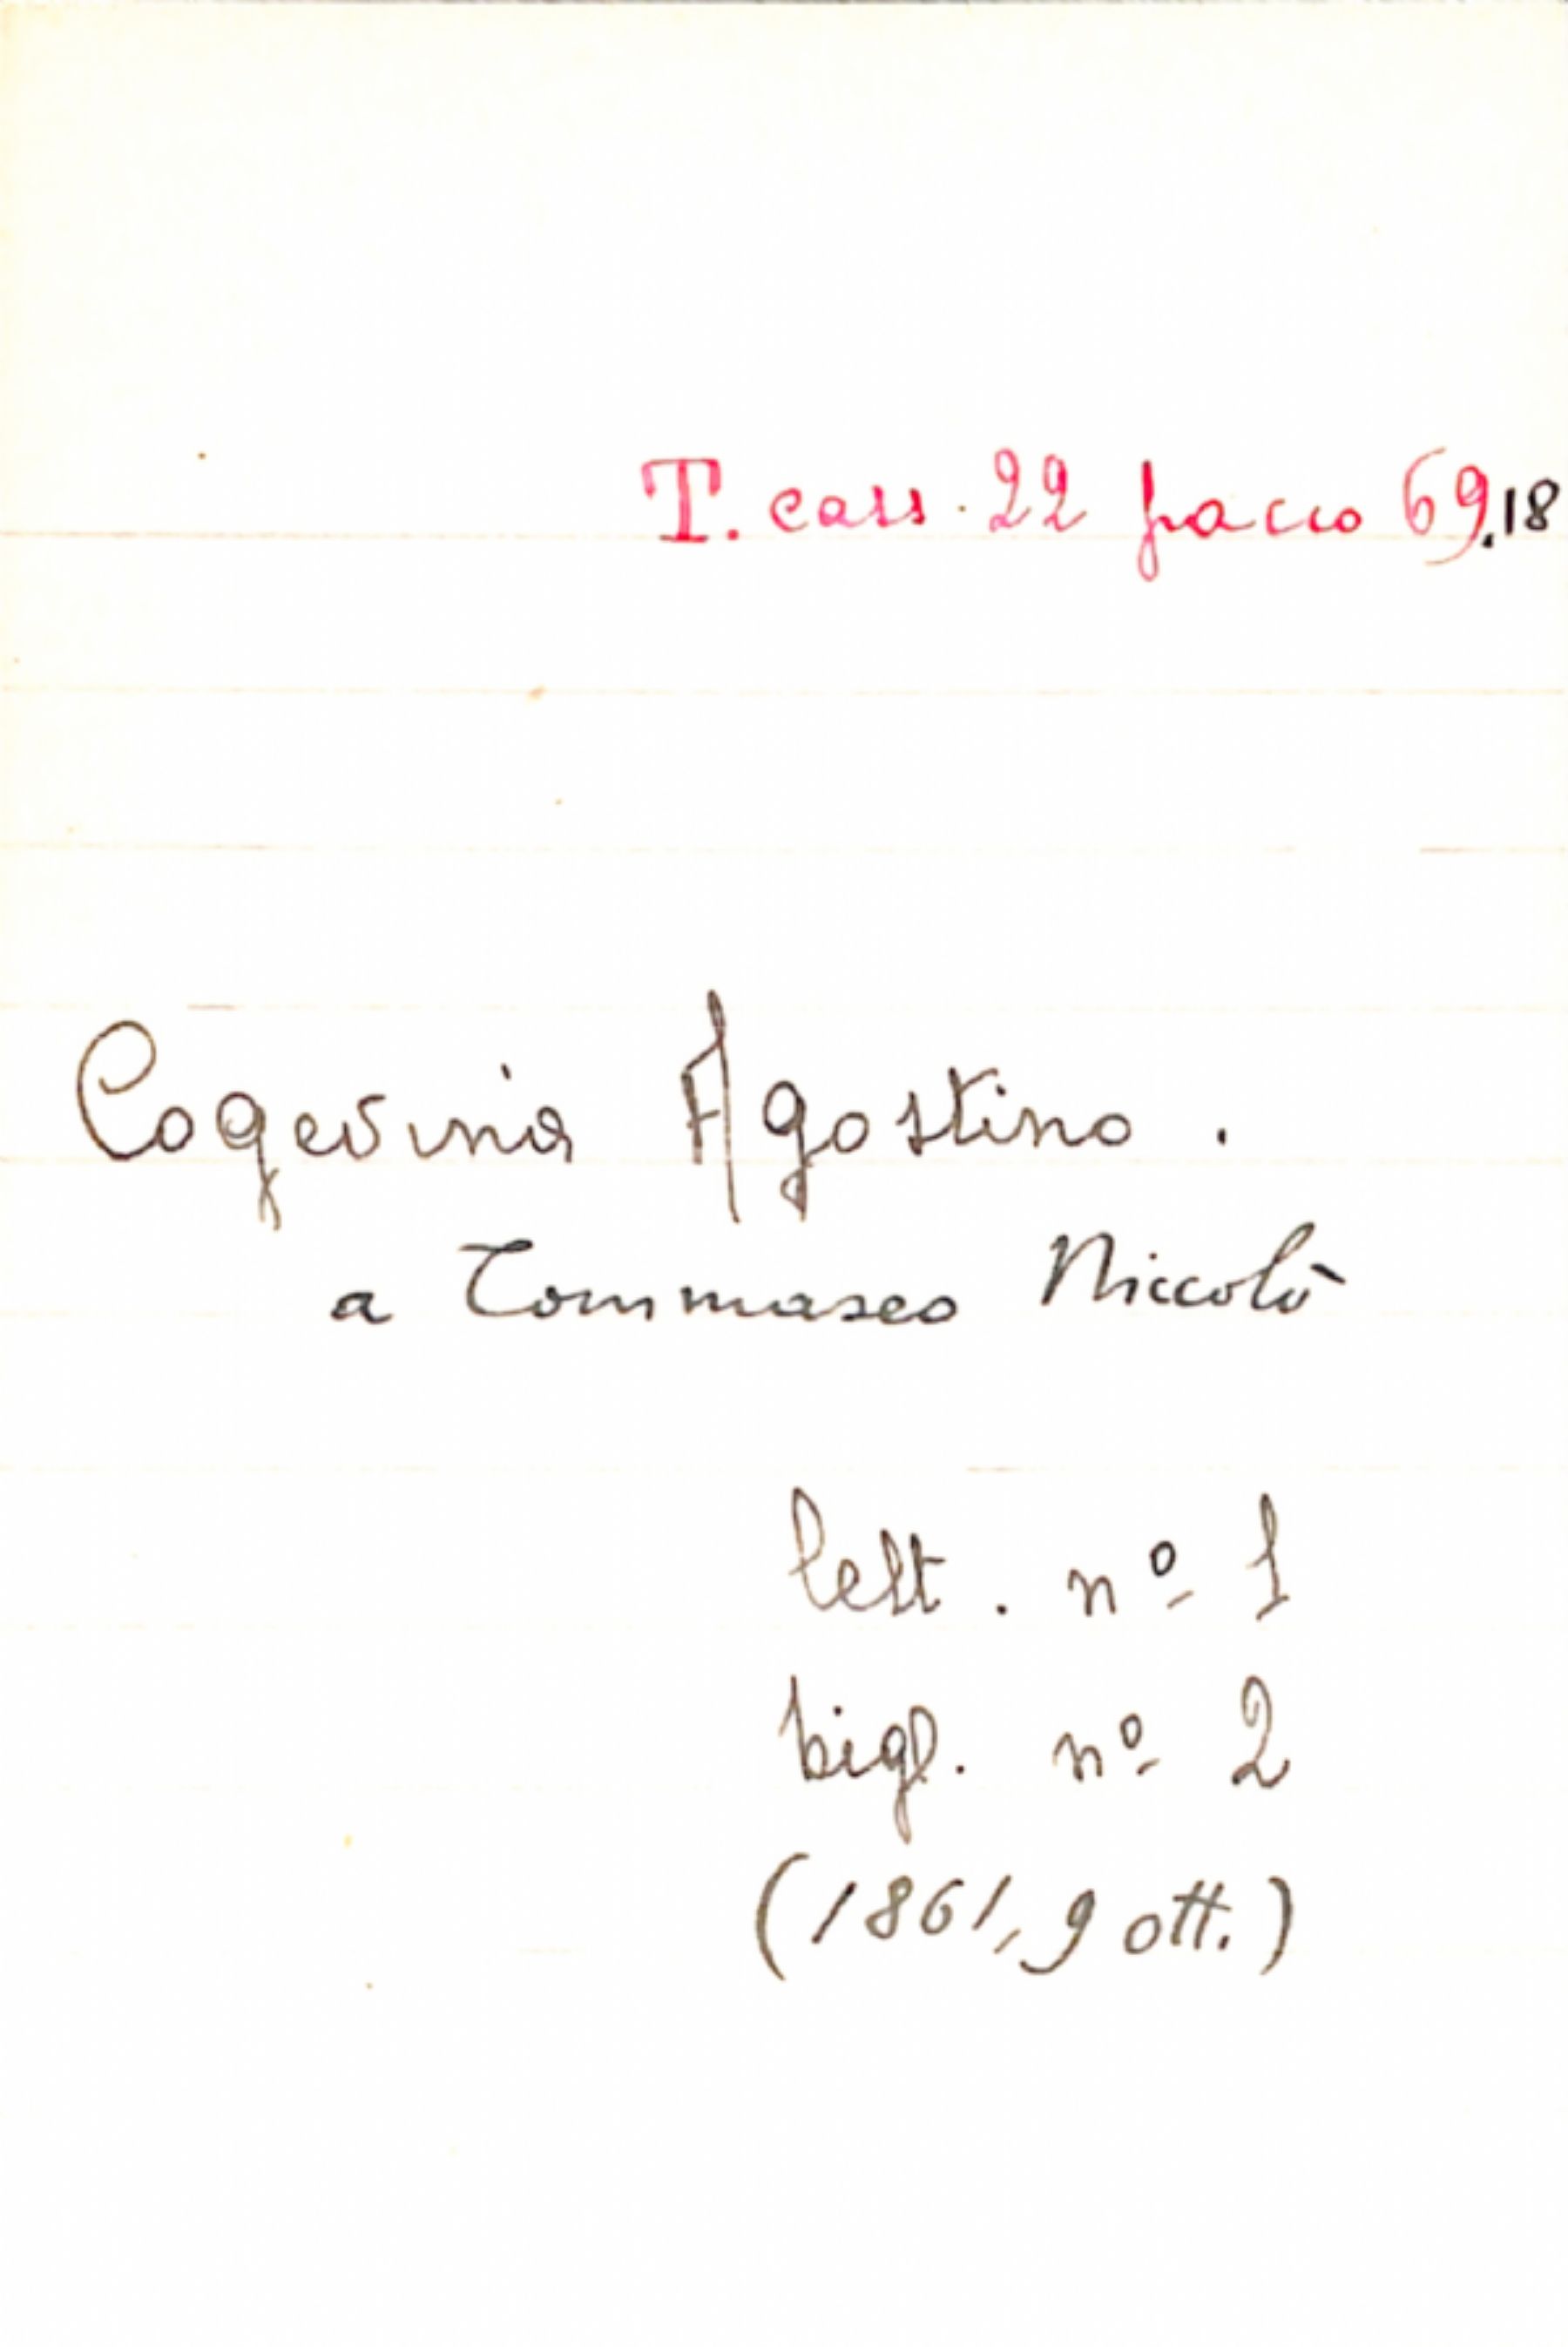 T. cass. 22 pacco 69.18
Cogevina Agostino.
a Tommaseo Niccolò
lett. nº 1
bigl. nº 2
(1861, 9 ott.)